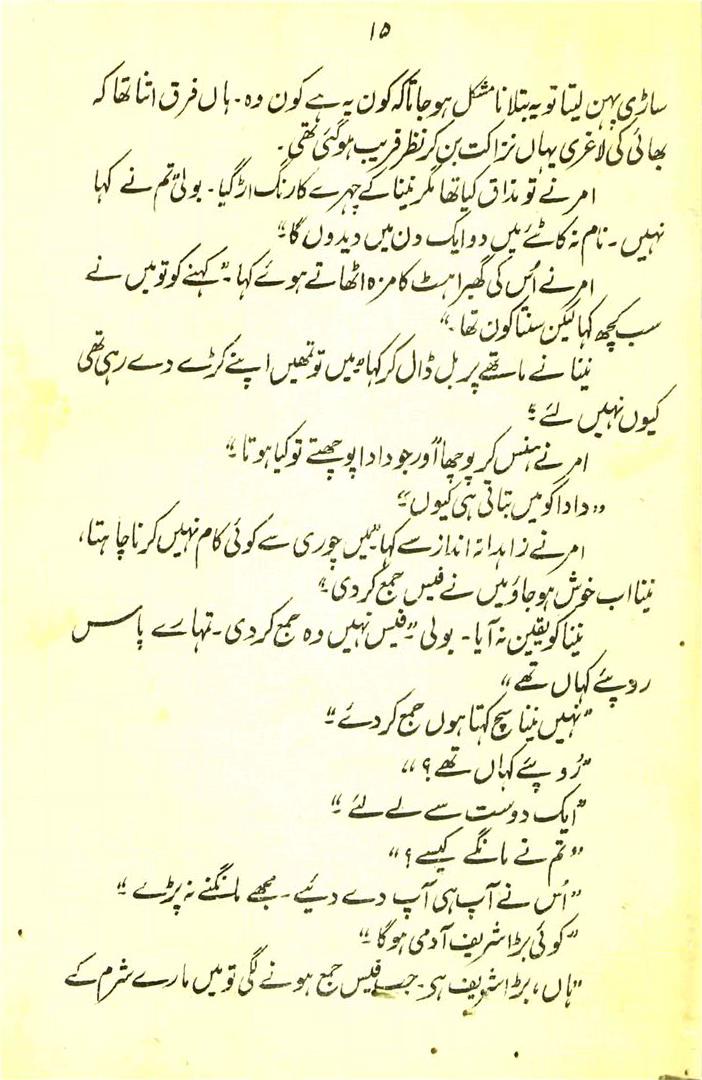 ۱۵
ساڑی پہن لیتا تو یہ بتلانا مشکل ہو جاتا کہ کون یہ ہے کون وہ۔ ہاں فرق اتنا تھا کہ
بھائی کی لاغری یہاں نزاکت بن کر نظر فریب ہو گئی تھی۔
امر نے تو مذاق کیا تھا مگر نینا کے چہرے کا رنگ اڑ گیا۔ بولی "تم نے کہا
نہیں۔ نام نہ کاٹئے میں دو ایک دن میں دیدوں گا"
امر نے اُس کی گھبراہٹ کا مزہ اٹھاتے ہوئے کہا۔ "کہنے کو تو میں نے
سب کچھ کہا لیکن سنتا کون تھا۔"
نینا نے ماتھے پر بل ڈال کر کہا "میں تو تمھیں اپنے کڑے دے رہی تھی
کیوں نہیں لئے؟"
امر نے ہنس کر پوچھا "اور جو دادا پوچھتے تو کیا ہوتا۔"
"دادا کو میں بتاتی ہی کیوں۔"
امر نے زاہدانہ انداز سے کہا "میں چوری سے کوئی کام نہیں کرنا چاہتا،
نینا اب خوش ہو جاؤ میں نے فیس جمع کر دی۔"
نینا کو یقین نہ آیا۔ بولی "فیس نہیں وہ جمع کر دی۔ تمہارے پاس
روپئے کہاں تھے"
"نہیں نینا سچ کہتا ہوں جمع کر دئے۔"
"رُوپئے کہاں تھے؟"
"ایک دوست سے لے لئے۔"
"تم نے مانگے کیسے؟"
"اُس نے آپ ہی آپ دے دئیے۔ مجھے مانگنے نہ پڑے۔"
"کوئی بڑا شریف آدمی ہوگا۔"
"ہاں، بڑا شریف ہی۔ جب فیس جمع ہونے لگی تو میں مارے شرم کے